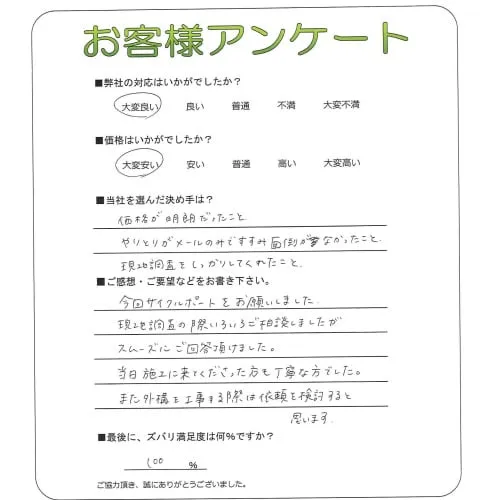 お客様アンケート
■弊社の対応はいかがでしたか？
大変良い 良い 普通 不満 大変不満
■価格はいかがでしたか？
大変安い 安い 普通 高い 大変高い
■当社を選んだ決め手は？
価格が明朗だったこと
やりとりがメールのみですすみ面倒がなかったこと.
現地調査をしっかりしてくれたこと.
■ご感想・ご要望などをお書き下さい。
今回サイクルポートをお願いしました.
現地調査の際いろいろご相談しましたが
スムーズにご回答頂けました。
当日施工に来てくださった方も丁寧な方でした。
また外構を工事する際は依頼を検討すると
思います.
■最後に、ズバリ満足度は何％ですか？
100 %
ご協力頂き、誠にありがとうございました。